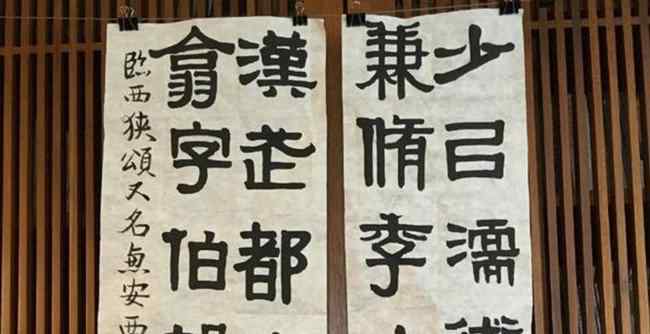 少㠯濡
兼脩季
漢武都
翕字伯
臨西狹頌又名惠安西